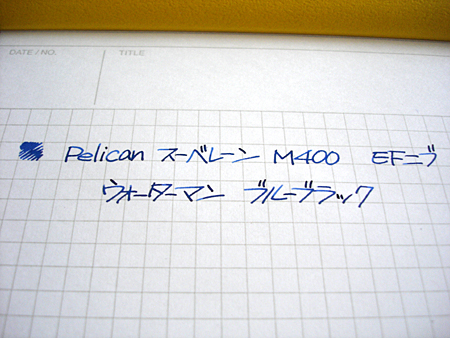 DATE / NO. TITLE
Pelican スーベレーン M400 EFニブ
ウォーターマン ブルーブラック